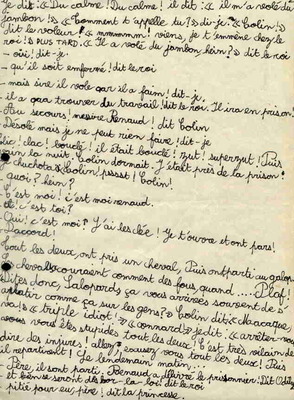 je dit: « Du calme! Du calme! il dit: « il m'a volé du
jambon!» « Comment t'appelle tu?» dis-je. « Colin!»
dit le voleur! « mmmmm! viens, je t'emmène chez le
roi!» PLUS TARD. « Il a volé du jambon hein?» dit le roi
- oui! dit-je
- qu'il soit enfermé! dit le roi
- mais sire il vole car il a faim! dit-je.
- il a qaa trouver du travail! dit le roi. Il ira en prison!
Au secours! messire Renaud! dit Colin
Désolé mais je ne peut rien faire! dit-je
clic! clac! bouclé! il était bouclé! zut! superzut! Puis
dans la nuit, Colin dormait. J'était près de la prison!
je chuchotais Colin! psssst! Colin!
- quoi? hein?
- C'est moi! c'est moi renaud.
- ah! c'est toi?
- Oui! c'est moi? J'ai les clée! Je t'ouvre et ont pars!
- D'accord!
Tout les deux, ont pris un cheval, Puis ont parti au galop
le cheval couraient comment des fous quand .... Plaf!
Dites donc, Salopards ça vous arrivées souvent de s'
arrêter comme ça sur les gens? » Colin dit: « Macaque,
va!» « triple idiot!» « connard» je dit: « arrêter vous
vous vous êtes stupides tout les deux! C'est très vilain de
dire des injures! allons excusez vous tout les deux! Puis
il repartirent! Le lendemain matin....
Père, il sont parti, Renaud a délivré le prisonnier! Dit Odile
et bien se seront des hor-la-loi! dit le roi
pitié pour eu, père! dit la princesse